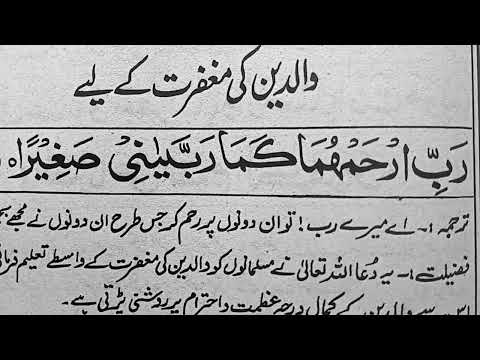 والدین کی مغفرت کے لیے
رَبِّ ارْحَمْهُمَا كَمَا رَبَّيٰنِيْ صَغِيْرًا ہ
ترجمہ :۔ اے میرے رب ! تو ان دونوں پر رحم کر جس طرح ان دونوں نے مجھے
فضیلت :۔ یہ دُعا اللہ تعالیٰ نے مسلمانوں کو والدین کی مغفرت کے واسطے تعلیم فرمائی
والدین کے کمال درجہ عظمت و احترام پر روشنی پڑتی ہے۔